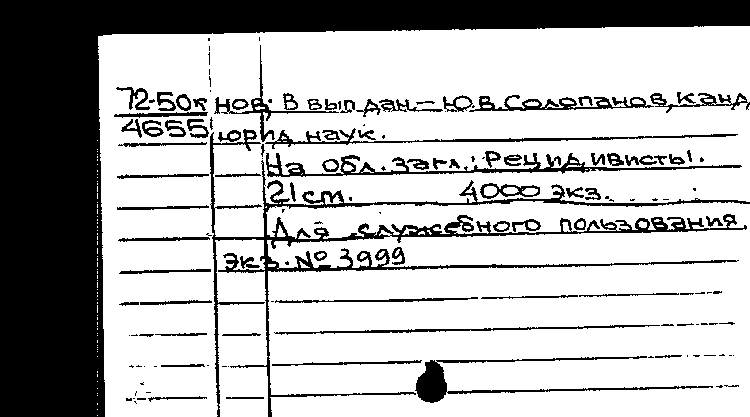 72-50к нов; В вып дан.- Ю.В. Солопанов, канд
4655 юрид наук.
На обл. загл.: Рецидивисты.
21 см. 4000 экз.
Для служебного пользования.
экз. № 3999